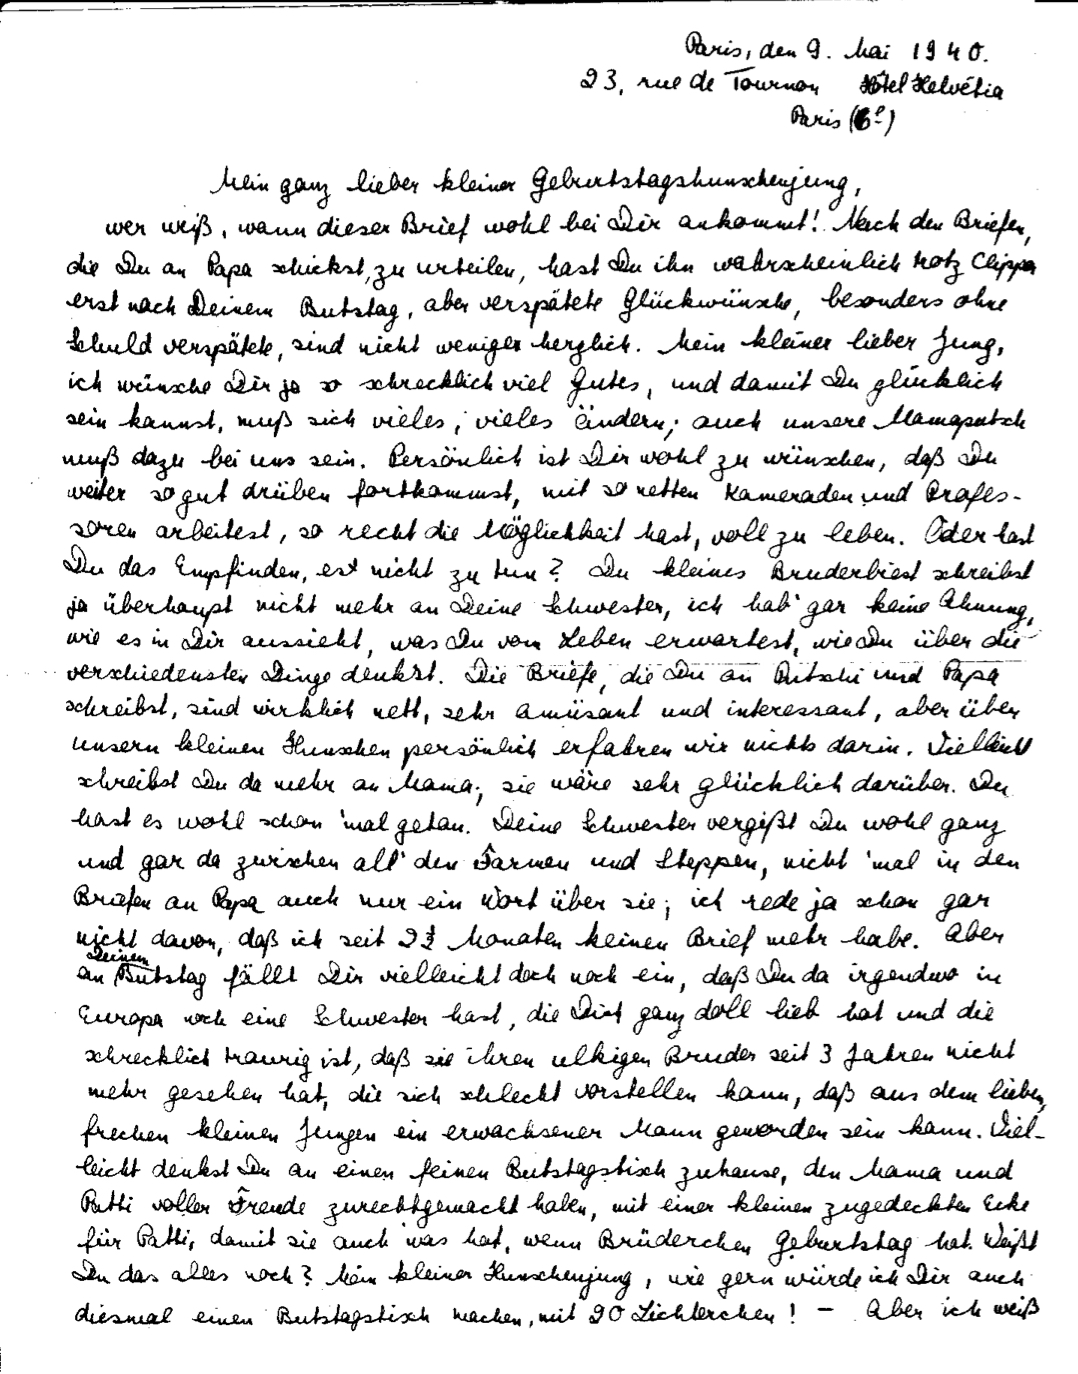 Paris, den 9. Mai 1940.
23, rue de Tournon Hôtel Helvétia
Paris (6e)
Mein ganz lieber kleiner Geburtstagshunschenjung,
wer weiß, wann dieser Brief wohl bei Dir ankommt! Nach den Briefen,
die Du an Papa schickst, zu urteilen, hast Du ihn wahrscheinlich trotz Clipper
erst nach Deinem Butstag, aber verspätete Glückwünsche, besonders ohne
Schuld verspätete, sind nicht weniger herzlich. Mein kleiner lieber Jung,
ich wünsche Dir ja so schrecklich viel Gutes, und damit Du glücklich
sein kannst, muß sich vieles, vieles ändern; auch unsere Mamaputsch
muß dazu bei uns sein. Persönlich ist Dir wohl zu wünschen, daß Du
weiter so gut drüben fortkommst, mit so netten Kameraden und Profes-
soren arbeitest, so recht die Möglichkeit hast, voll zu leben. Oder hast
Du das Empfinden, es nicht zu tun? Du kleines Bruderbiest schreibst
ja überhaupt nicht mehr an Deine Schwester, ich hab' gar keine Ahnung,
wie es in Dir aussieht, was Du vom Leben erwartest, wie Du über die
verschiedensten Dinge denkst. Die Briefe, die Du an Putschi und Papa
schreibst, sind wirklich nett, sehr amüsant und interessant, aber über
unsern kleinen Hunschen persönlich erfahren wir nichts darin. Vielleicht
schreibst Du da mehr an Mama; sie wäre sehr glücklich darüber. Du
hast es wohl schon 'mal getan. Deine Schwester vergißt Du wohl ganz
und gar da zwischen all' den Farmen und Steppen, nicht 'mal in den
Briefen an Papa auch nur ein Wort über sie; ich rede ja schon gar
nicht davon, daß ich seit 2½ Monaten keinen Brief mehr habe. Aber
an Deinem Butstag fällt Dir vielleicht doch noch ein, daß Du da irgendwo in
Europa noch eine Schwester hast, die Dich ganz doll lieb hat und die
schrecklich traurig ist, daß sie ihren ulkigen Bruder seit 3 Jahren nicht
mehr gesehen hat, die sich schlecht vorstellen kann, daß aus dem lieben,
frechen kleinen Jungen ein erwachsener Mann geworden sein kann. Viel-
leicht denkst Du an einen feinen Butstagstisch zuhause, den Mama und
Patti voller Freude zurechtgemacht haben, mit einer kleinen zugedeckten Ecke
für Patti, damit sie auch was hat, wenn Brüderchen Geburtstag hat. Weißt
Du das alles noch? Mein kleiner Hunschenjung, wie gern würde ich Dir auch
diesmal einen Butstagstisch machen, mit 20 Lichterchen! – Aber ich weiß